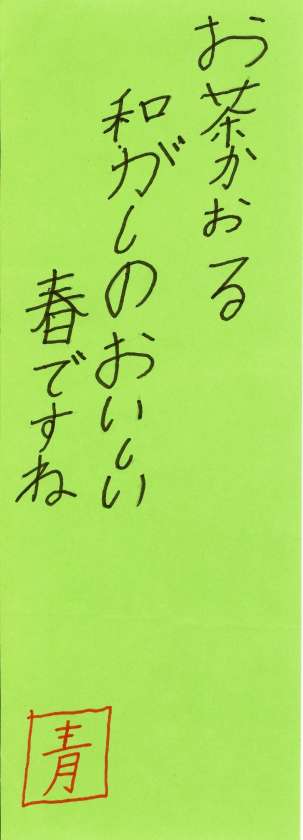 お茶かおる
和がしのおいしい
春ですね
青